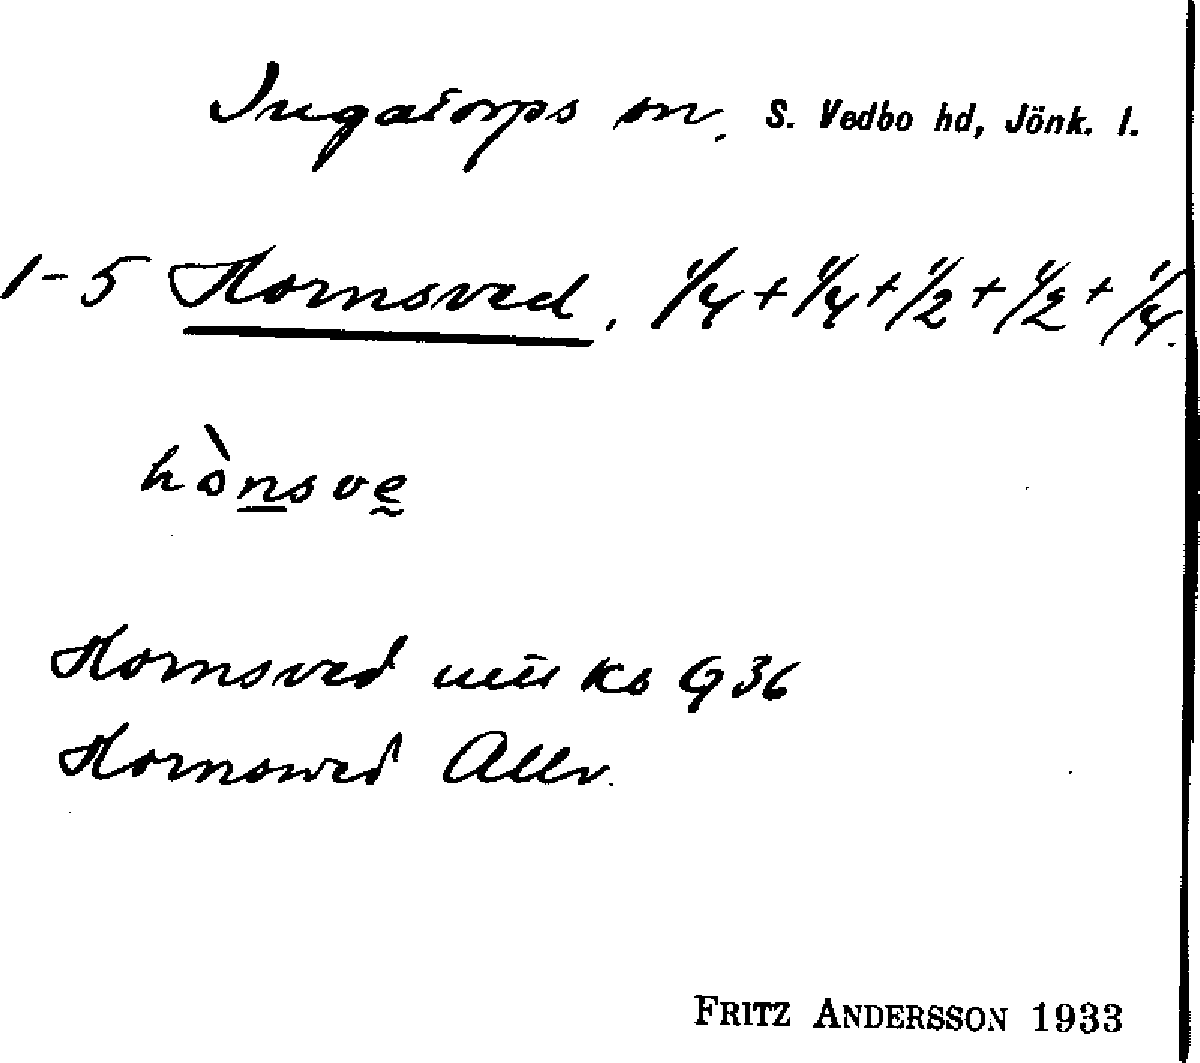 Ingatorps sn, S. Vedbo hd, Jönk. l.
1-5 Hornsved, 1/4 + 1/4 + 1/2 + 1/2 + 1/4.
hònsve
Hornsved Ks G 36
Hornswed Allv.
FRITZ ANDERSSON 1933